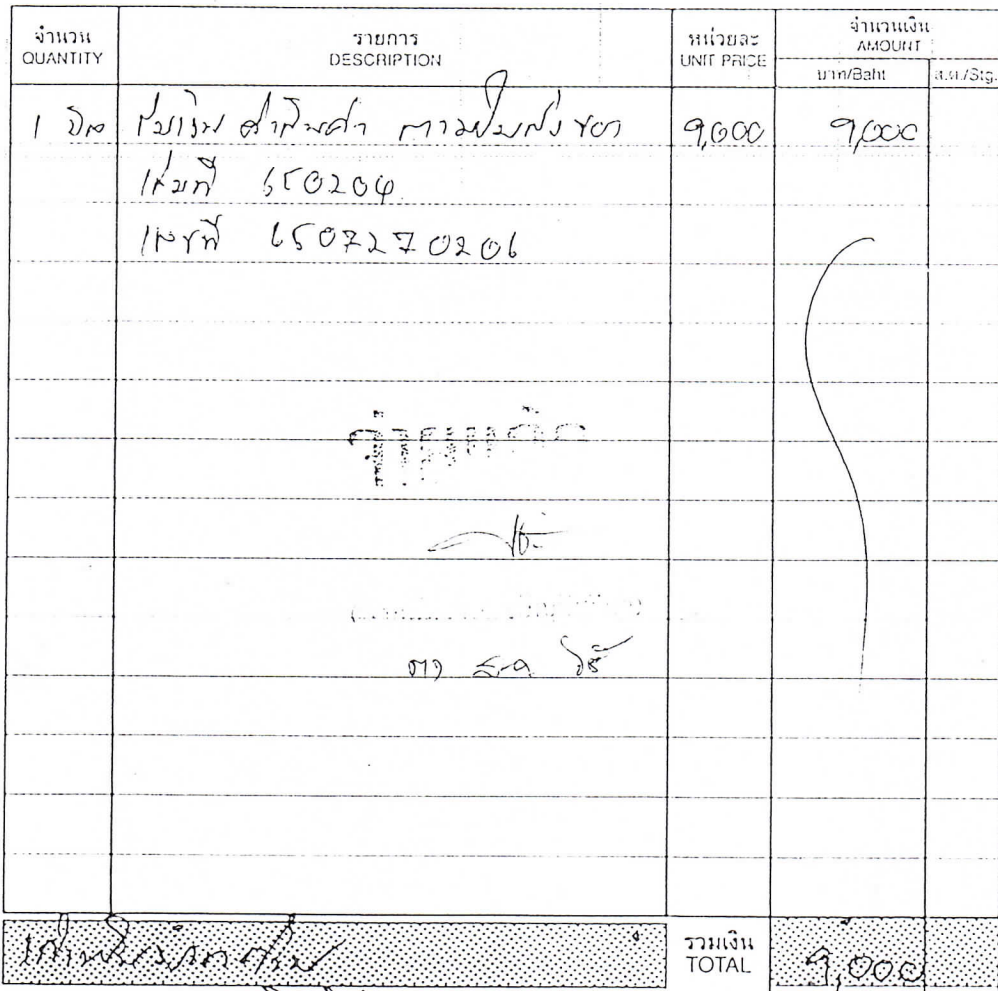 จำนวน
QUANTITY
รายการ
DESCRIPTION
หน่วยละ
UNIT PRICE
จำนวนเงิน
AMOUNT
บาท/Baht
ส.ต./Stg.
1 บิล รับเงิน ค่าสินค้า ตามใบส่งของ 9,000 9,000
เล่มที่ 650204
เลขที่ 6507270206
จ่ายแล้ว
เก้าพันบาทถ้วน
รวมเงิน
TOTAL
9,000